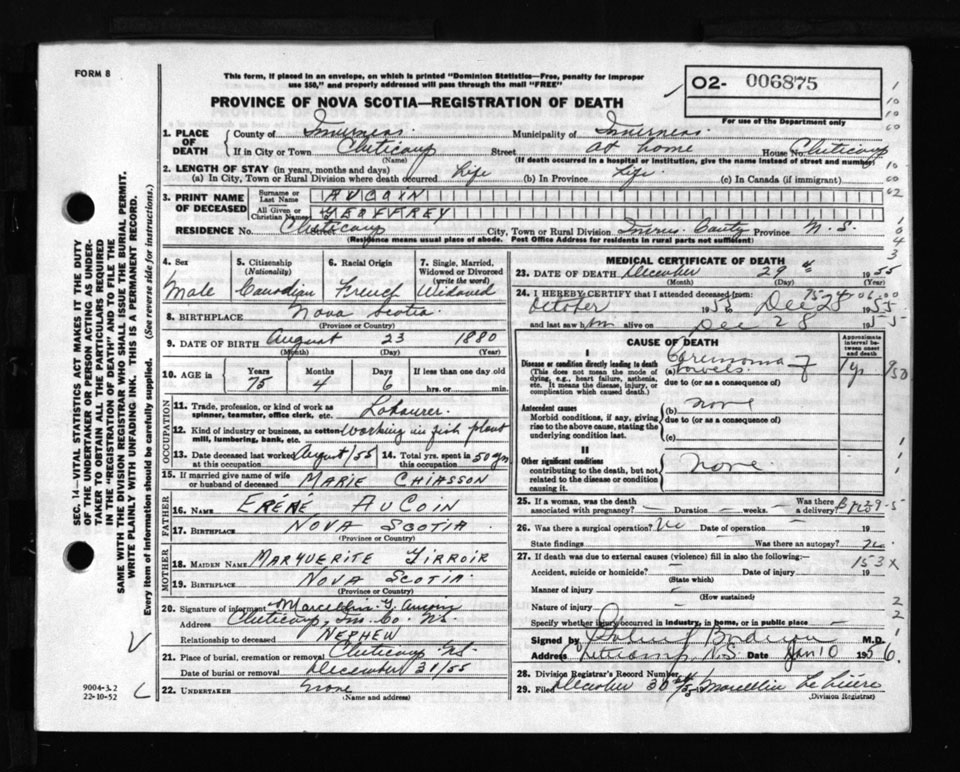 FORM 8
This form, if placed in an envelope, on which is printed "Dominion Statistics—Free, penalty for improper
use $50," and properly addressed will pass through the mail "FREE"
O2- 006875
For use of the Department only
PROVINCE OF NOVA SCOTIA—REGISTRATION OF DEATH
1. PLACE OF DEATH
County of Inverness. Municipality of Inverness.
If in City or Town Cheticamp Street at home House No. Cheticamp
(Name) (If death occurred in a hospital or institution, give the name instead of street and number)
2. LENGTH OF STAY (in years, months and days)
(a) In City, Town or Rural Division where death occurred Life (b) In Province Life. (c) In Canada (if immigrant)
3. PRINT NAME OF DECEASED
Surname or Last Name AUCOIN
All Given or Christian Names GEOFFREY
RESIDENCE No. Cheticamp Street City, Town or Rural Division Inver. County Province N.S.
(Residence means usual place of abode. Post Office Address for residents in rural parts not sufficient)
4. Sex Male
5. Citizenship (Nationality) Canadian
6. Racial Origin French
7. Single, Married, Widowed or Divorced (write the word) Widowed
8. BIRTHPLACE Nova Scotia
(Province or Country)
9. DATE OF BIRTH August 23 1880
(Month) (Day) (Year)
10. AGE in Years Months Days If less than one day old
75 4 6 hrs. or min.
OCCUPATION
11. Trade, profession, or kind of work as
spinner, teamster, office clerk, etc. Labourer.
12. Kind of industry or business, as cotton
mill, lumbering, bank, etc. Working in fish plant
13. Date deceased last worked at this occupation August/55
14. Total yrs. spent in this occupation 50 yrs
15. If married give name of wife
or husband of deceased MARIE CHIASSON
FATHER
16. NAME ERÉNÉ AUCOIN
17. BIRTHPLACE NOVA SCOTIA
(Province or Country)
MOTHER
18. MAIDEN NAME MARGUERITE
19. BIRTHPLACE NOVA SCOTIA
(Province or Country)
20. Signature of informant Marcellin Aucoin
Address Cheticamp, Inv. Co. NS.
Relationship to deceased NEPHEW
21. Place of burial, cremation or removal Cheticamp NS.
Date of burial or removal December 31/55
22. UNDERTAKER none
(Name and address)
MEDICAL CERTIFICATE OF DEATH
23. DATE OF DEATH December 29th 1955
(Month) (Day)
24. I HEREBY CERTIFY that I attended deceased from:
October Dec 28 1955
and last saw him alive on Dec 28 1955
CAUSE OF DEATH
Approximate interval between onset and death
I
Disease or condition directly leading to death
(This does not mean the mode of
dying, e.g., heart failure, asthenia,
etc. It means the disease, injury, or
complication which caused death.)
(a) of bowels 1 yr
due to (or as a consequence of)
Antecedent causes
Morbid conditions, if any, giving
rise to the above cause, stating the
underlying condition last.
(b) none
due to (or as a consequence of)
(c)
II
Other significant conditions
contributing to the death, but not
related to the disease or condition
causing it.
none.
25. If a woman, was the death
associated with pregnancy? Duration — weeks. Was there a delivery?
26. Was there a surgical operation? No Date of operation 19
State findings Was there an autopsy? no
27. If death was due to external causes (violence) fill in also the following:— 153X
Accident, suicide or homicide? Date of injury 19
(State which)
Manner of injury
(How sustained)
Nature of injury
Specify whether injury occurred in industry, in home, or in public place
Signed by M.D.
Address Cheticamp, N.S. Date Jan 10 1956.
28. Division Registrar's Record Number
29. Filed December 30 Marcellin
(Division Registrar)
SEC. 14—VITAL STATISTICS ACT MAKES IT THE DUTY
OF THE UNDERTAKER OR PERSON ACTING AS UNDER-
TAKER TO OBTAIN ALL THE PARTICULARS REQUIRED
IN THE "REGISTRATION OF DEATH" AND TO FILE THE
SAME WITH THE DIVISION REGISTRAR WHO SHALL ISSUE THE BURIAL PERMIT.
WRITE PLAINLY WITH UNFADING INK. THIS IS A PERMANENT RECORD.
Every item of information should be carefully supplied. (See reverse side for instructions.)
9004-3.2
22-10-52